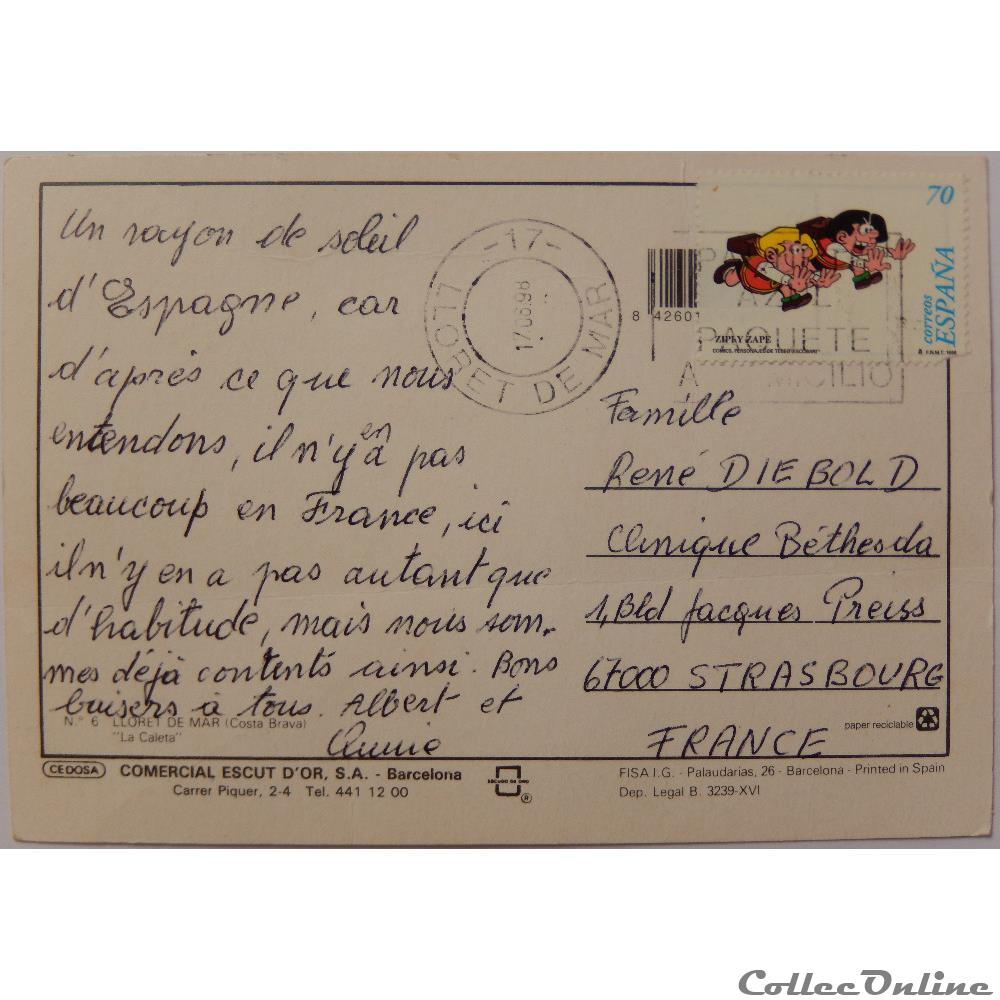 Un rayon de soleil
d'Espagne, car
d'après ce que nous
entendons, il n'y en a pas
beaucoup en France, ici
il n'y en a pas autant que
d'habitude, mais nous som-
mes déjà contents ainsi. Bons
baisers à tous. Albert et
Annie
N.º 6 LLORET DE MAR (Costa Brava)
"La Caleta"
-17-
LLORET DE MAR
17 08 98
8 42601
70
correos
ESPAÑA
ZIPI Y ZAPE
COMICS. PERSONAJES DE TEBEO (ESCOBAR)
F.N.M.T. 1998
PAQUETE
Famille
René DIEBOLD
Clinique Béthesda
1, Bld Jacques Preiss
67000 STRASBOURG
FRANCE
paper reciclable
CEDOSA COMERCIAL ESCUT D'OR, S.A. - Barcelona
Carrer Piquer, 2-4 Tel. 441 12 00
ESCUDO DE ORO
®
FISA I.G. - Palaudarias, 26 - Barcelona - Printed in Spain
Dep. Legal B. 3239-XVI
CollecOnline